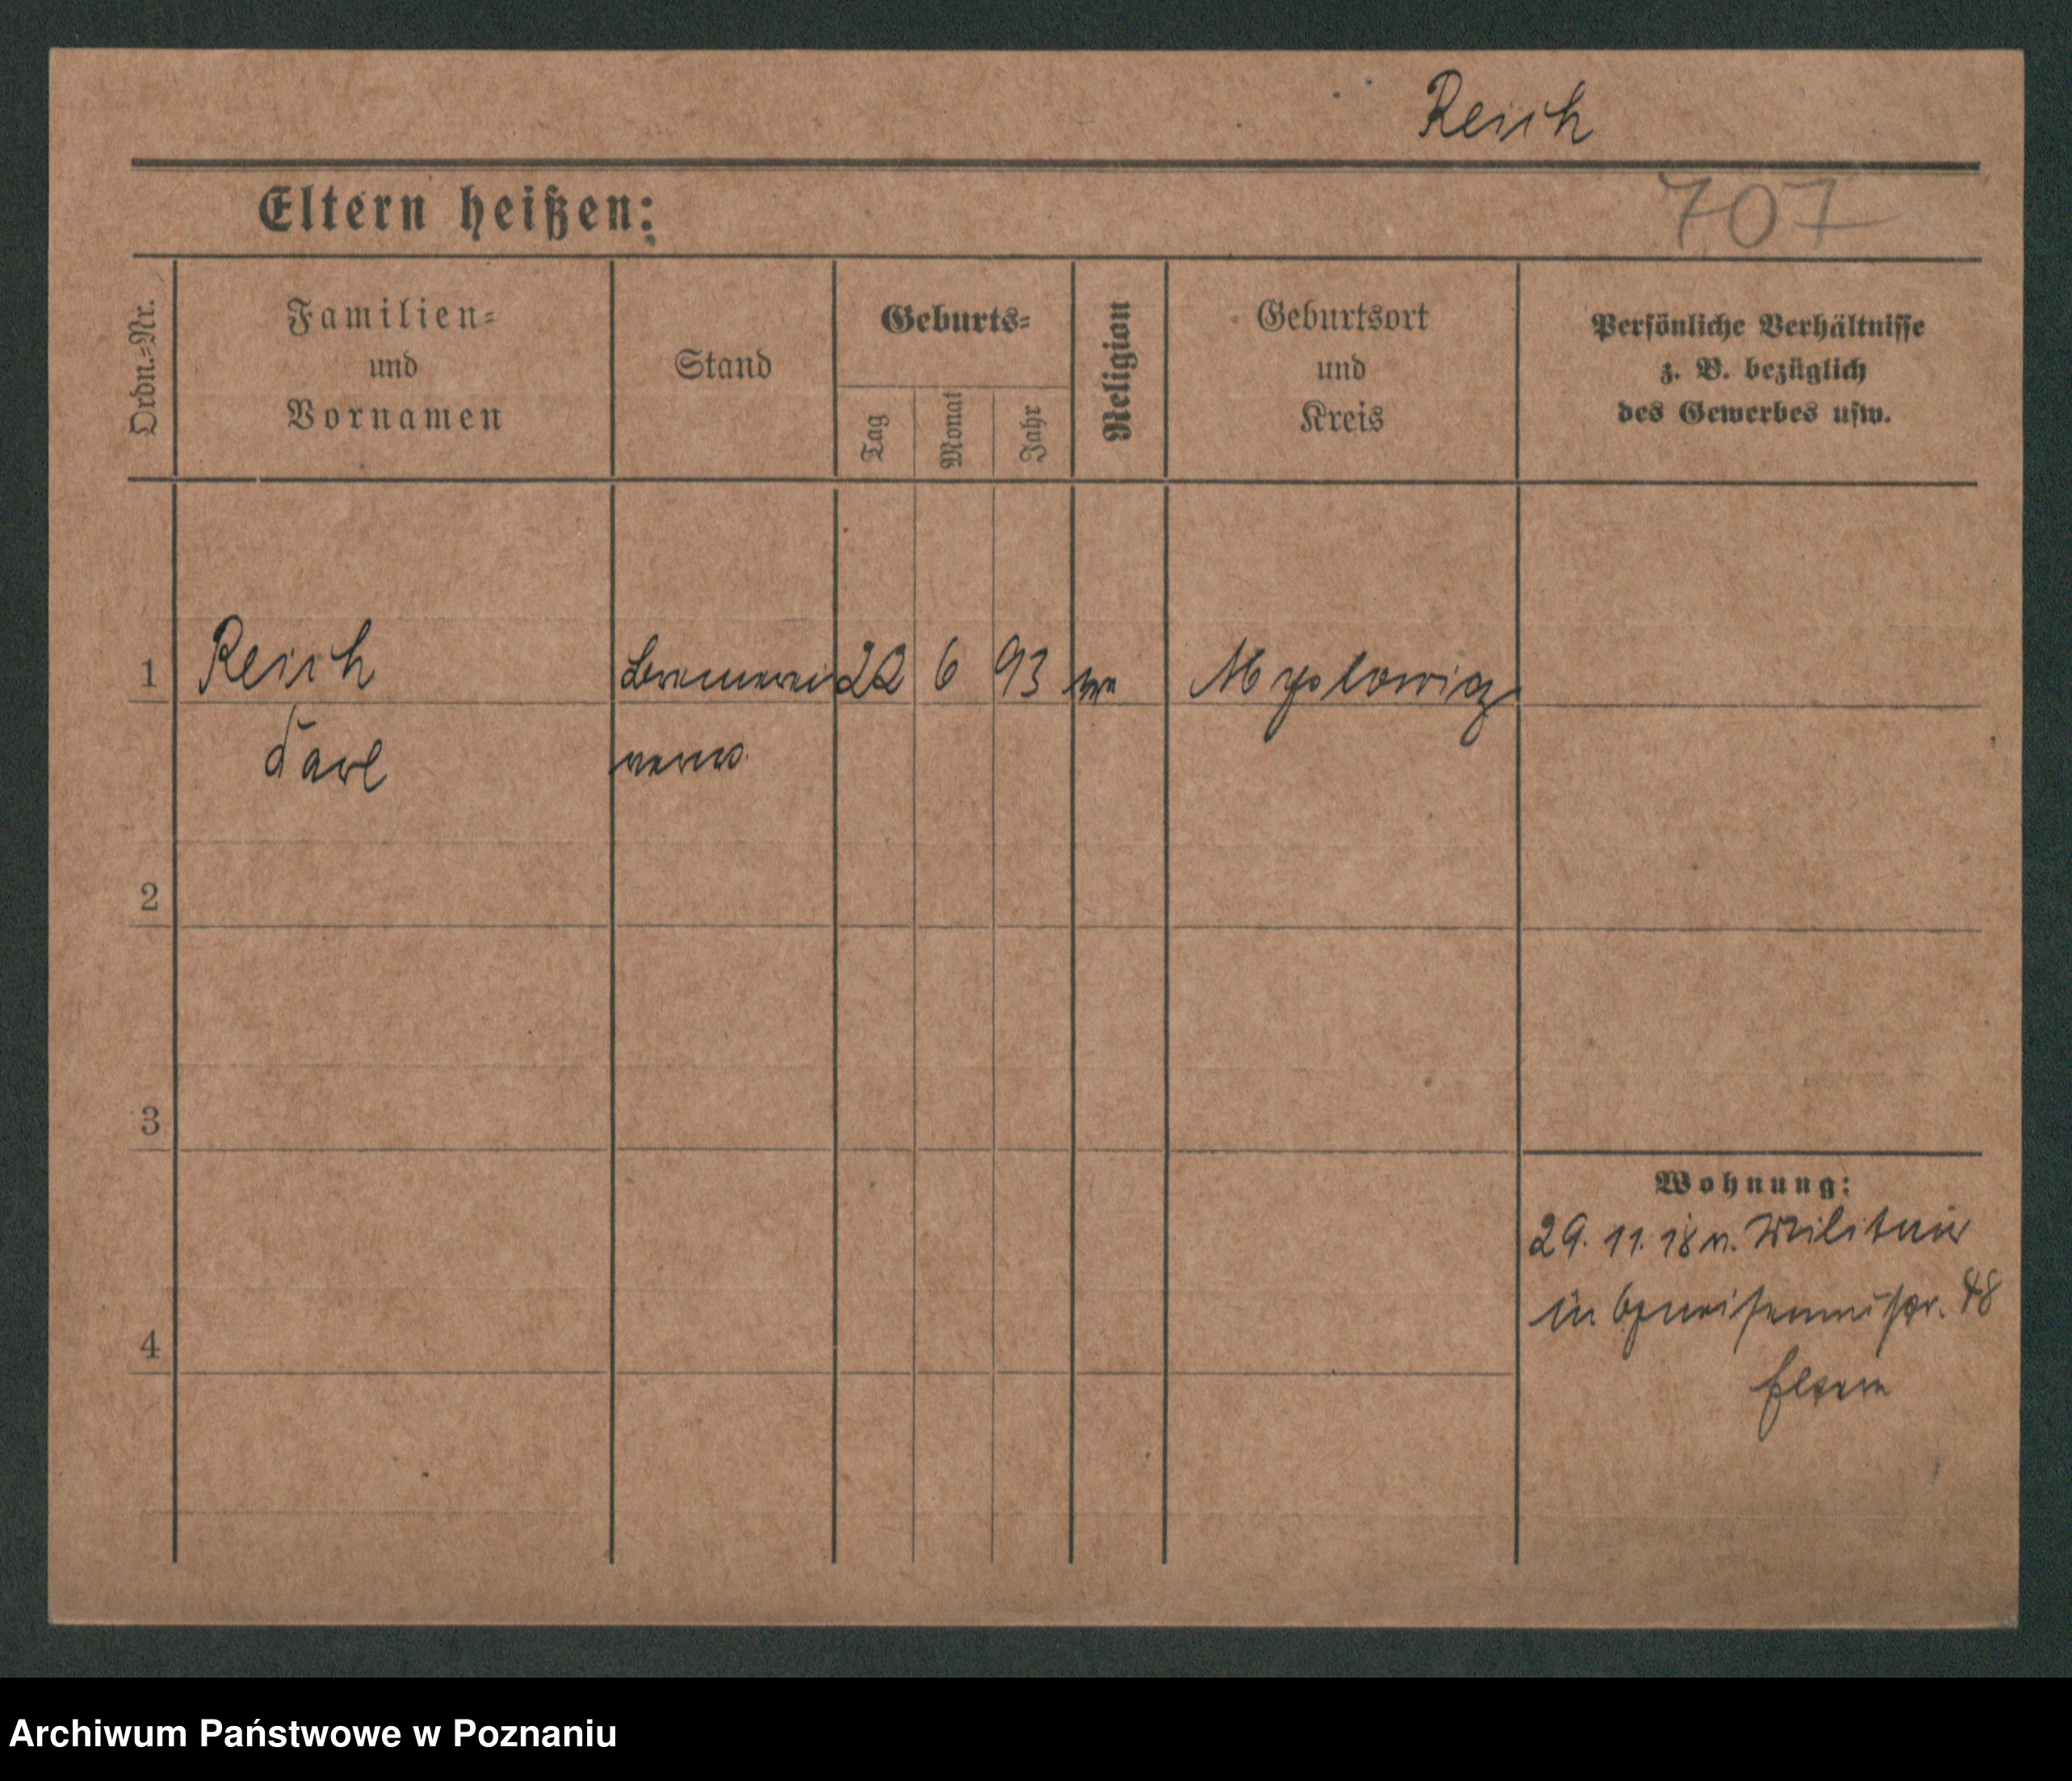 Reich
Eltern heißen:
707
Ordn.=Nr.
Familien=
und
Vornamen
Stand
Geburts=
Tag
Monat
Jahr
Religion
Geburtsort
und
Kreis
Persönliche Verhältnisse
z. B. bezüglich
des Gewerbes usw.
1 Reich 22 6 93 Myslowitz
Carl
2
3
4
Wohnung:
29. 11. 18 v. Militär
in Gneisenaustr. 48
Eltern
Archiwum Państwowe w Poznaniu